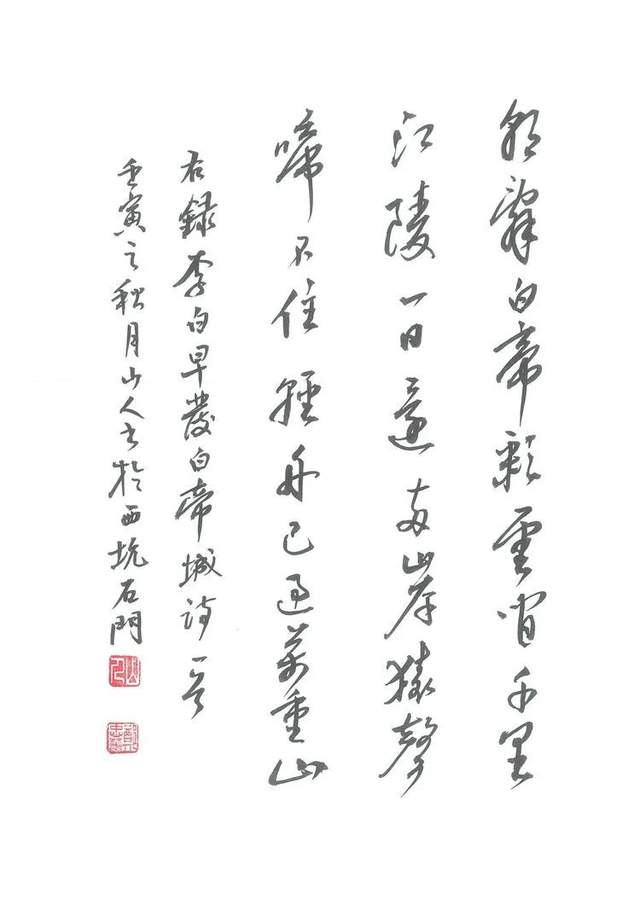 朝辭白帝彩雲間千里
江陵一日還兩岸猿聲
啼不住輕舟已過萬重山
右錄李白早發白帝城詩一首
壬寅之秋月山人書於西坑石門
山人